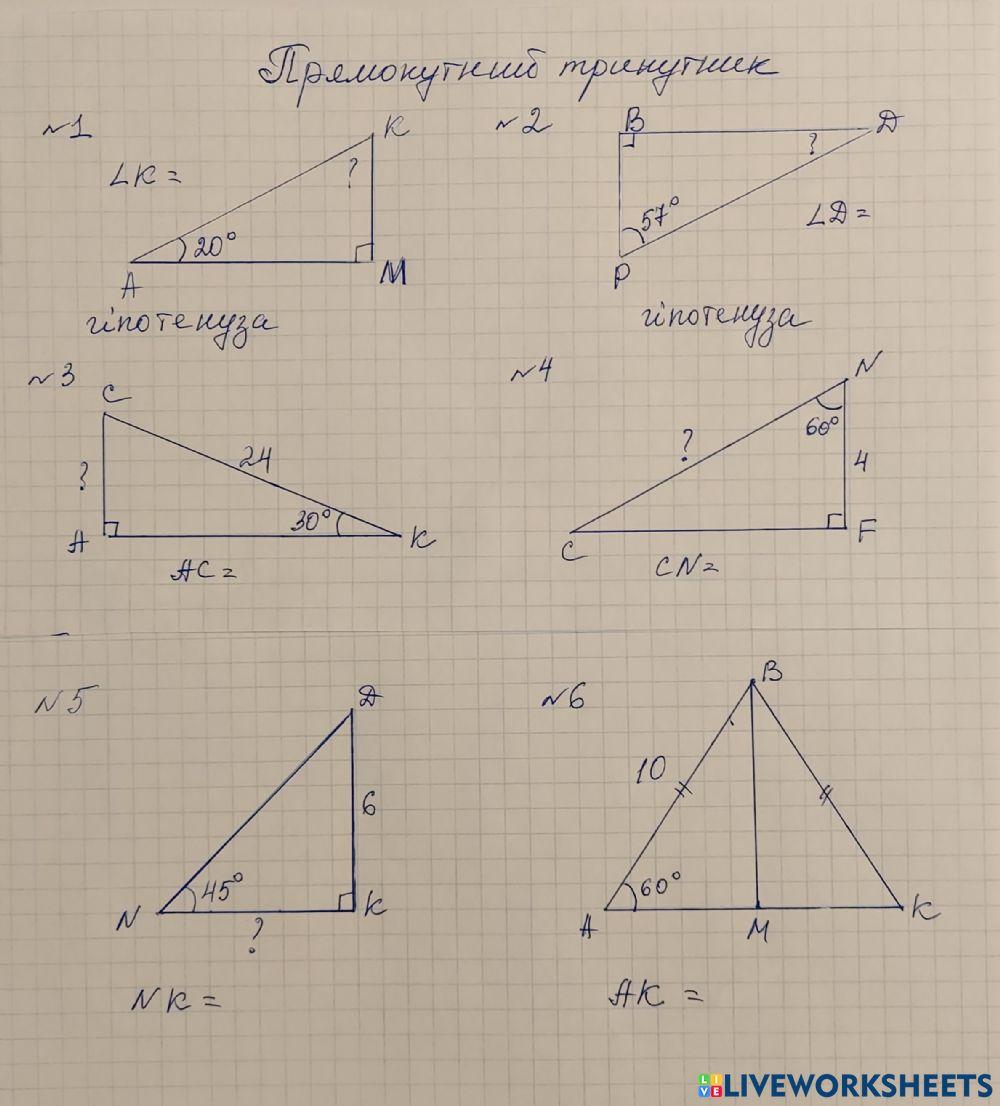 Прямокутний трикутник
№1
K
∠K =
?
20°
A
M
гіпотенуза
№2
B
Д
?
57°
∠Д =
P
гіпотенуза
№3
C
?
24
30°
A
K
AC =
№4
N
60°
?
4
C
F
CN =
№5
Д
6
45°
N
K
?
NK =
№6
B
10
60°
A
M
K
AK =
LIVE LIVEWORKSHEETS